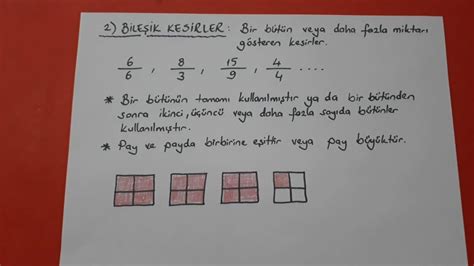 2) BİLEŞİK KESİRLER: Bir bütün veya daha fazla miktarı
gösteren kesirler.
6/6 , 8/3 , 15/9 , 4/4 ....
* Bir bütünün tamamı kullanılmıştır ya da bir bütünden
sonra ikinci, üçüncü veya daha fazla sayıda bütünler
kullanılmıştır.
* Pay ve payda birbirine eşittir veya pay büyüktür.